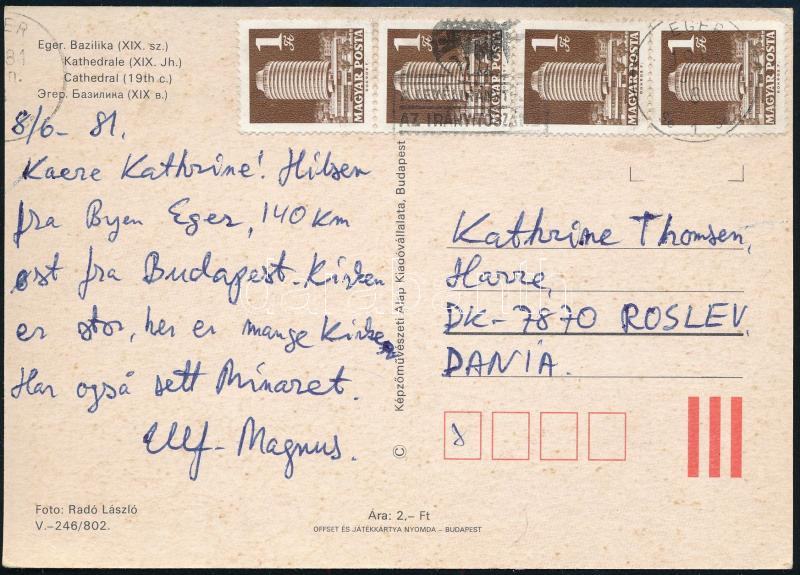 Eger. Bazilika (XIX. sz.)
Kathedrale (XIX. Jh.)
Cathedral (19th c.)
Эгер. Базилика (XIX в.)
1 Ft
MAGYAR POSTA
1 Ft
MAGYAR POSTA
1 Ft
MAGYAR POSTA
1 Ft
MAGYAR POSTA
EGER
81
AZ IRÁNYÍTÓSZÁ
8/6- 81.
Kaere Kathrine! Hilsen
fra Byen Eger, 140 Km
øst fra Budapest. Kirken
er stor, her er mange Kirker
Har også sett Minaret.
Ulf-Magnus.
© Képzőművészeti Alap Kiadóvállalata, Budapest
Kathrine Thomsen,
Harre,
DK-7870 ROSLEV
DANIA.
Foto: Radó László
V.–246/802.
Ára: 2,– Ft
OFFSET ÉS JÁTÉKKÁRTYA NYOMDA – BUDAPEST